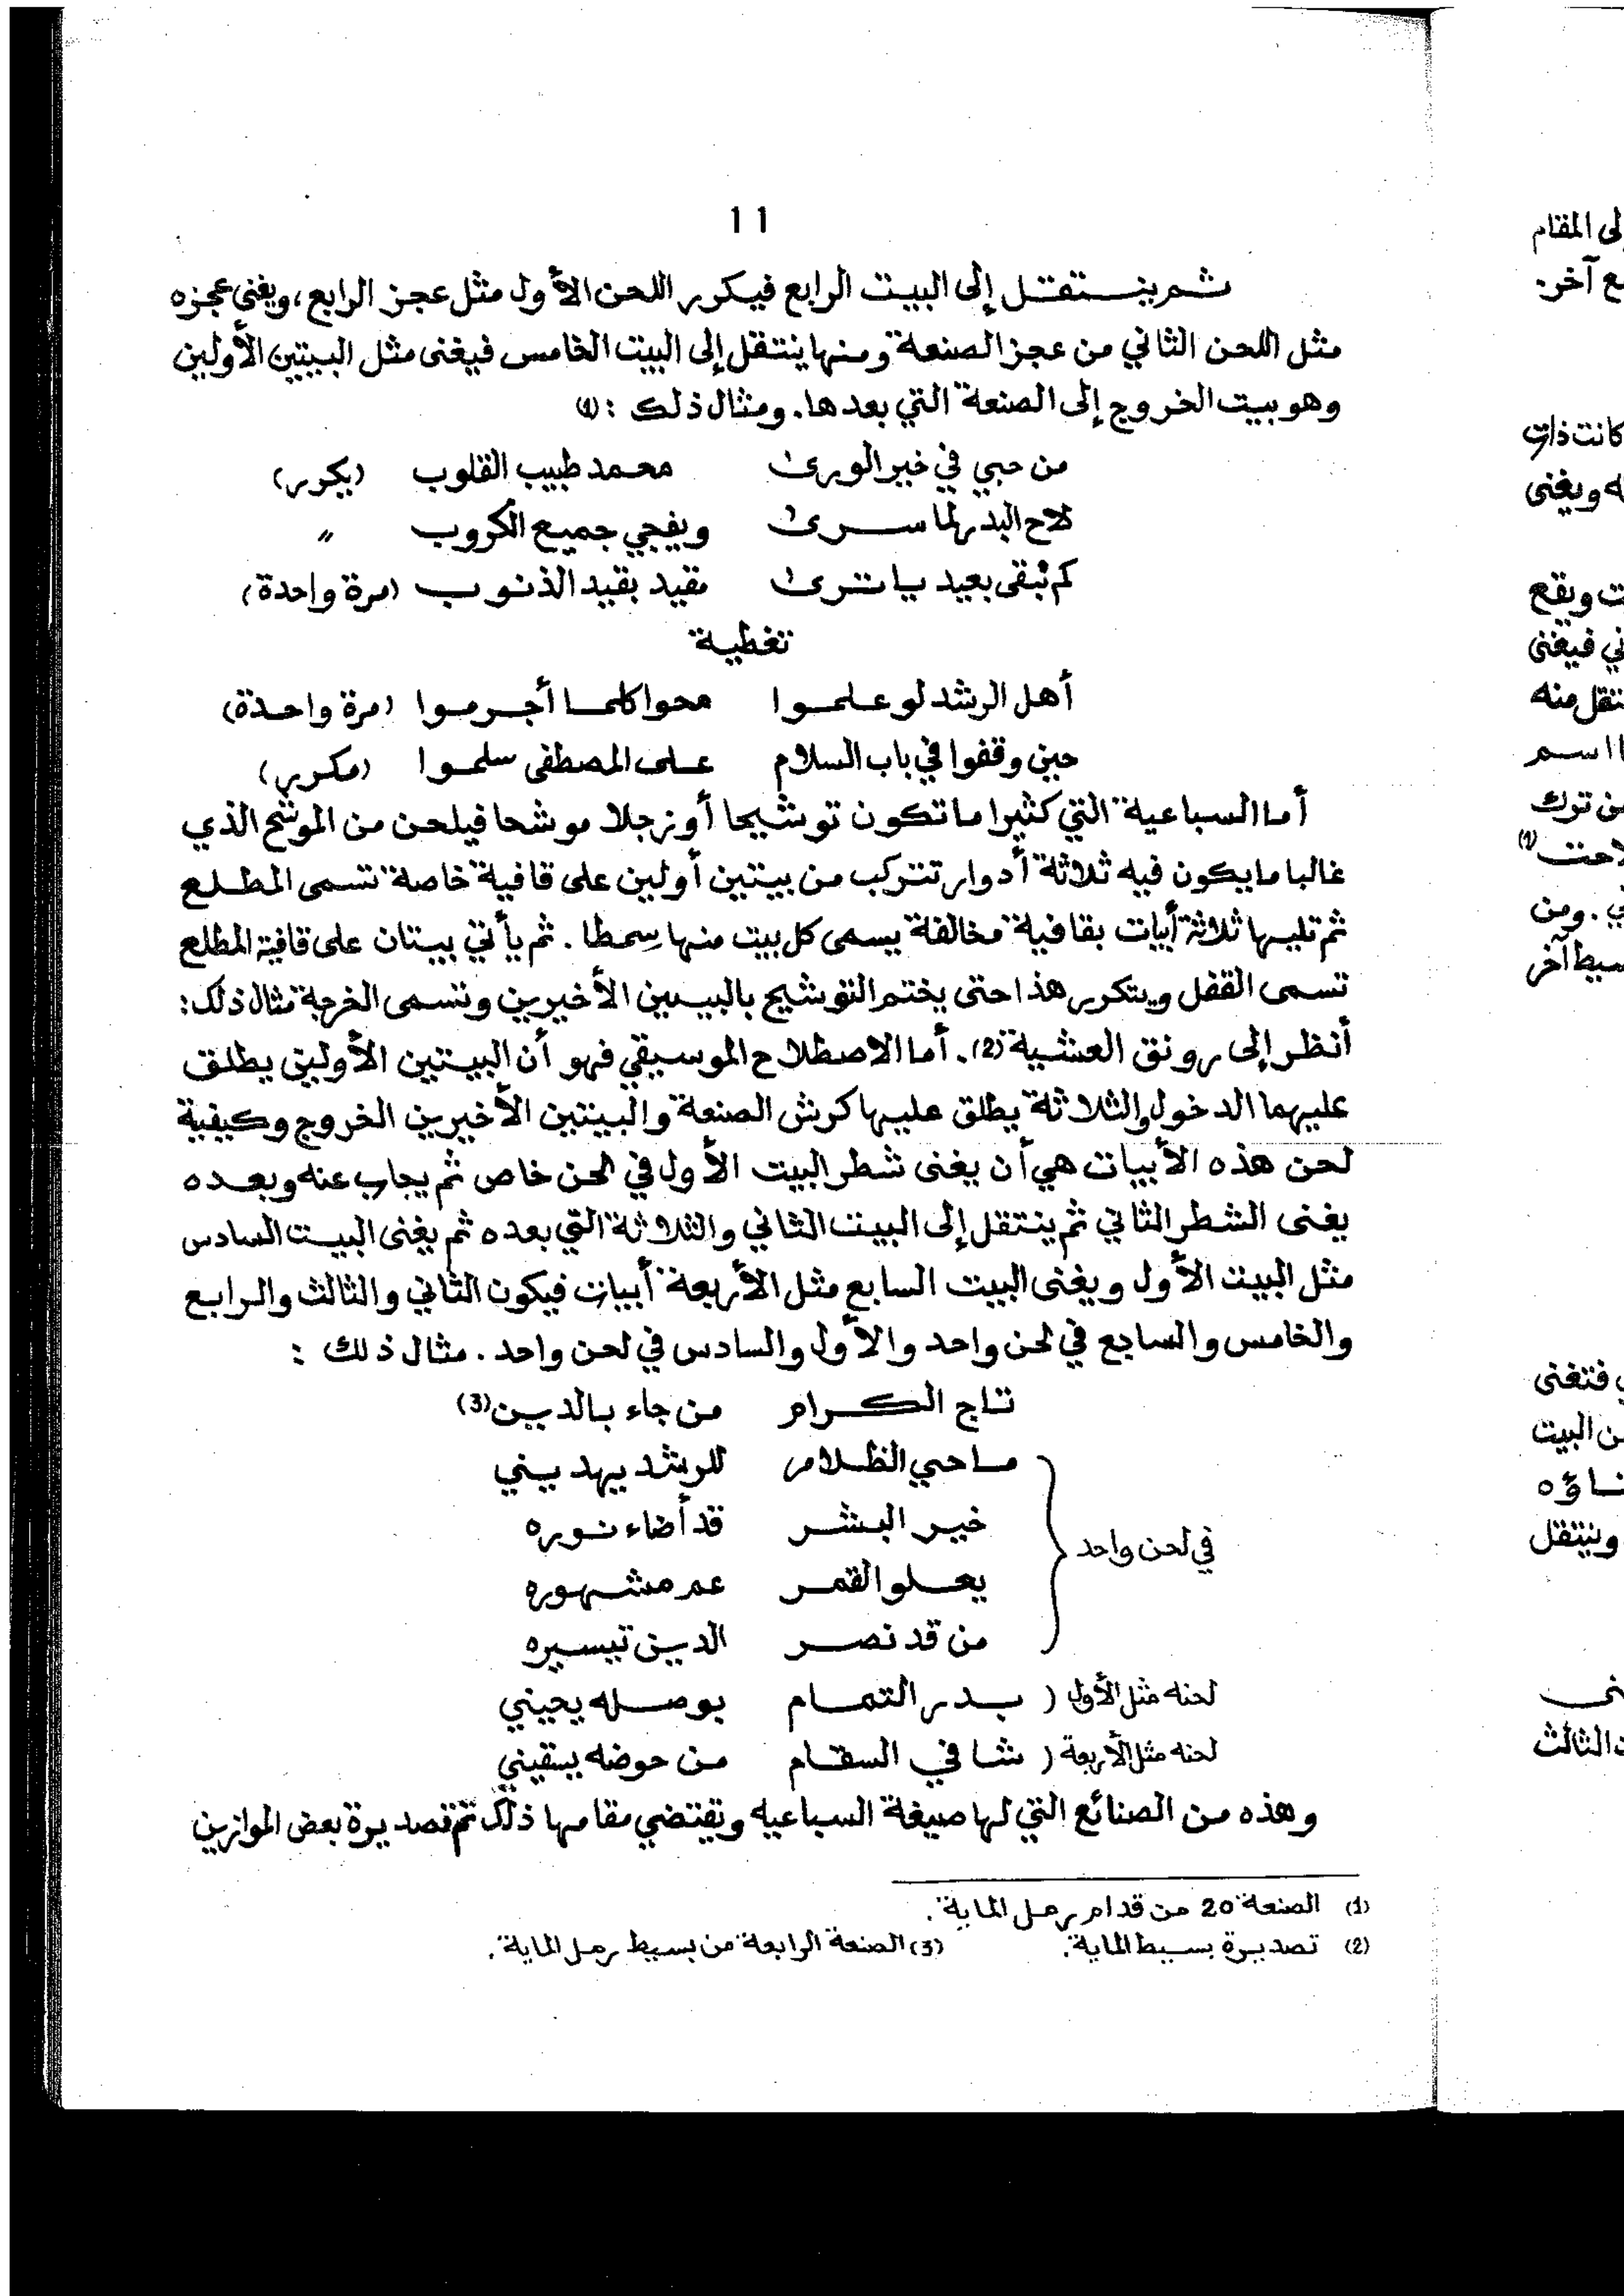 11
ثم ينتقل إلى البيت الرابع فيكرر اللحن الأول مثل عجز الرابع، ويغنى عجزه
مثل اللحن الثاني من عجز الصنعة ومنها ينتقل إلى البيت الخامس فيغنى مثل البيتين الأولين
وهو بيت الخروج إلى الصنعة التي بعدها. ومثال ذلك : (1)
من حبي في خير الورى محمد طبيب القلوب (يكرر)
لاح البدر لما سرى ويفجي جميع الكروب "
كم نبقى بعيد يا ترى مقيد بقيد الذنوب (مرة واحدة)
تغطية
أهل الرشد لو علموا محوا كلما أجرموا (مرة واحدة)
حين وقفوا في باب السلام على المصطفى سلموا (مكرر)
أما السباعية التي كثيرا ما تكون توشيحا أو زجلا موشحا فيلحن من الموشح الذي
غالبا ما يكون فيه ثلاثة أدوار تتركب من بيتين أولين على قافية خاصة تسمى المطلع
ثم تليها ثلاثة أبيات بقافية مخالفة يسمى كل بيت منها سمطا . ثم يأتي بيتان على قافية المطلع
تسمى القفل ويتكرر هذا حتى يختم التوشيح بالبيتين الأخيرين وتسمى الخرجة مثال ذلك:
أنظر إلى رونق العشية (2). أما الاصطلاح الموسيقي فهو أن البيتين الأولين يطلق
عليهما الدخول والثلاثة يطلق عليها كرش الصنعة والبيتين الأخيرين الخروج وكيفية
لحن هذه الأبيات هي أن يغنى شطر البيت الأول في لحن خاص ثم يجاب عنه وبعده
يغنى الشطر الثاني ثم ينتقل إلى البيت الثاني والثلاثة التي بعده ثم يغنى البيت السادس
مثل البيت الأول ويغنى البيت السابع مثل الأربعة أبيات فيكون الثاني والثالث والرابع
والخامس والسابع في لحن واحد والأول والسادس في لحن واحد . مثال ذلك :
تاج الكرام من جاء بالدين (3)
ماحي الظلام للرشد يهديني
خير البشر قد أضاء نوره
في لحن واحد
يعلو القمر عم مشهوره
من قد نصر الدين تيسيره
لحنه مثل الأول ( بدر التمام بوصله يحييني
لحنه مثل الأربعة ( شافي السقام من حوضه يسقيني
وهذه من الصنائع التي لها صيغة السباعيه وتقتضي مقامها ذلك ثم تصديرة بعض الموازين
(1) الصنعة 20 من قدام رمل الماية .
(2) تصديرة بسيط الماية. (3) الصنعة الرابعة من بسيط رمل الماية .
لى المقام
ع آخر.
كانت ذات
ه ويغنى
ت ويقع
ني فيغنى
تقل منه
ا اسم
ن ترك
لاحت (1)
ي . ومن
سيط آخر
ي فتغنى
ن البيت
ناؤه
وينتقل
نى
ت الثالث